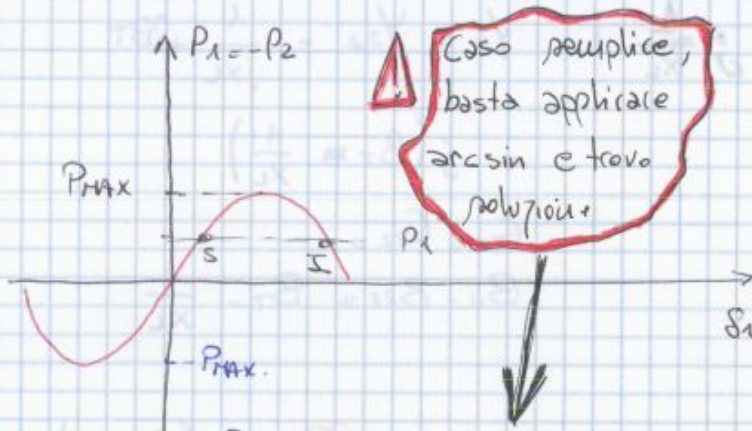 P1=-P2
Caso semplice,
basta applicare
arcsin e trovo
soluzione
PMAX
S
I
P1
δ1
-PMAX.